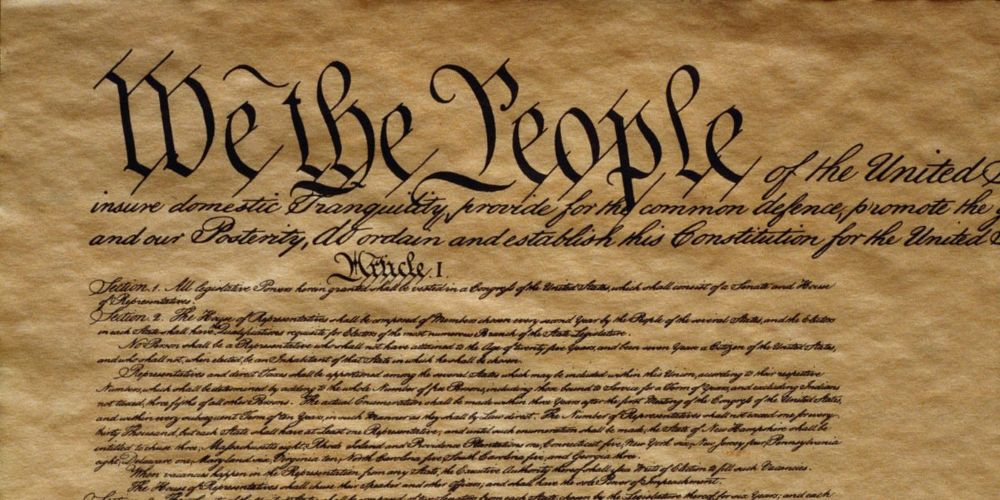 We the People of the United
insure domestic Tranquility, provide for the common defence, promote the
and our Posterity, do ordain and establish this Constitution for the United
Article. I.
Section. 1. All legislative Powers herein granted shall be vested in a Congress of the United States, which shall consist of a Senate and House
of Representatives.
Section. 2. The House of Representatives shall be composed of Members chosen every second Year by the People of the several States, and the Electors
in each State shall have Qualifications requisite for Electors of the most numerous Branch of the State Legislature.
No Person shall be a Representative who shall not have attained to the Age of twenty five Years, and been seven Years a Citizen of the United States,
and who shall not, when elected, be an Inhabitant of that State in which he shall be chosen.
Representatives and direct Taxes shall be apportioned among the several States which may be included within this Union, according to their respective
Numbers, which shall be determined by adding to the whole Number of free Persons, including those bound to Service for a Term of Years, and excluding Indians
not taxed, three fifths of all other Persons. The actual Enumeration shall be made within three Years after the first Meeting of the Congress of the United States,
and within every subsequent Term of ten Years, in such Manner as they shall by Law direct. The Number of Representatives shall not exceed one for every
thirty Thousand, but each State shall have at Least one Representative; and until such enumeration shall be made, the State of New Hampshire shall be
entitled to chuse three, Massachusetts eight, Rhode Island and Providence Plantations one, Connecticut five, New York six, New Jersey four, Pennsylvania
eight, Delaware one, Maryland six, Virginia ten, North Carolina five, South Carolina five, and Georgia three.
When vacancies happen in the Representation from any State, the Executive Authority thereof shall issue Writs of Election to fill such Vacancies.
The House of Representatives shall chuse their Speaker and other Officers; and shall have the sole Power of Impeachment.
shall be composed of two Senators from each State, chosen by the Legislature thereof, for six Years; and each